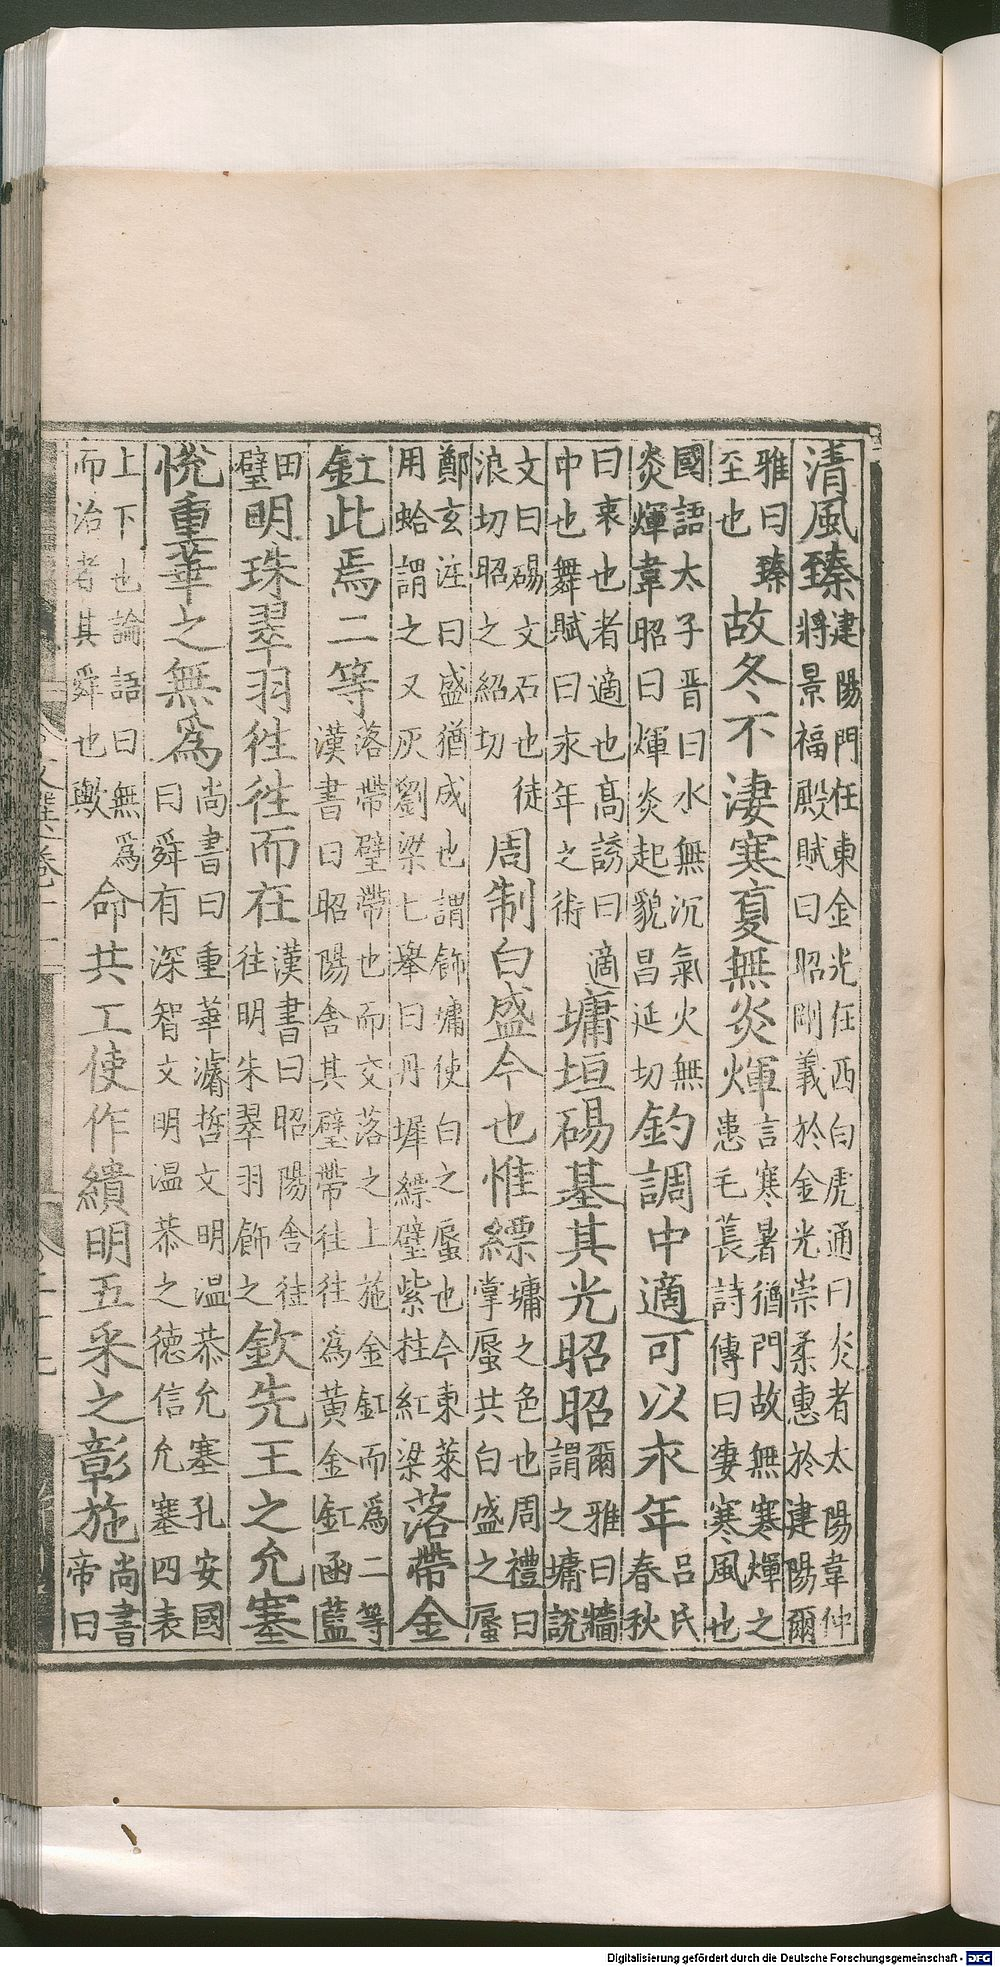 清風臻建陽門在東金光在西白虎通曰炎者太陽韋仲將景福殿賦曰昭剛義於金光崇柔惠於建陽爾
雅曰臻至也故冬不淒寒夏無炎煇言寒暑猶門故無寒煇之患毛萇詩傳曰淒寒風也
國語太子晉曰水無沉氣火無炎煇韋昭曰煇炎起貌昌延切鈞調中適可以永年呂氏春秋
曰衷也者適也高誘曰適中也舞賦曰永年之術墉垣碭基其光昭昭爾雅曰牆謂之墉說
文曰碭文石也徒浪切昭之紹切周制白盛今也惟縹墉之色也周禮曰掌蜃共白盛之蜃
鄭玄注曰盛猶成也謂飾墉使白之蜃也今東萊用蛤謂之叉灰劉梁七舉曰丹墀縹壁紫柱紅梁落帶金
釭此焉二等落帶壁帶也而交落之上施金釭而爲二等漢書曰昭陽舍其壁帶往往爲黃金釭函藍
田璧明珠翠羽徃徃而在漢書曰昭陽舍徃往明朱翠羽飾之欽先王之允塞
悅重華之無爲尚書曰重華濬哲文明温恭允塞孔安國曰舜有深智文明温恭之德信允塞四表
上下也論語曰無爲而治者其舜也歟命共工使作繢明五采之彰施尚書帝曰
Digitalisierung gefördert durch die Deutsche Forschungsgemeinschaft - DFG